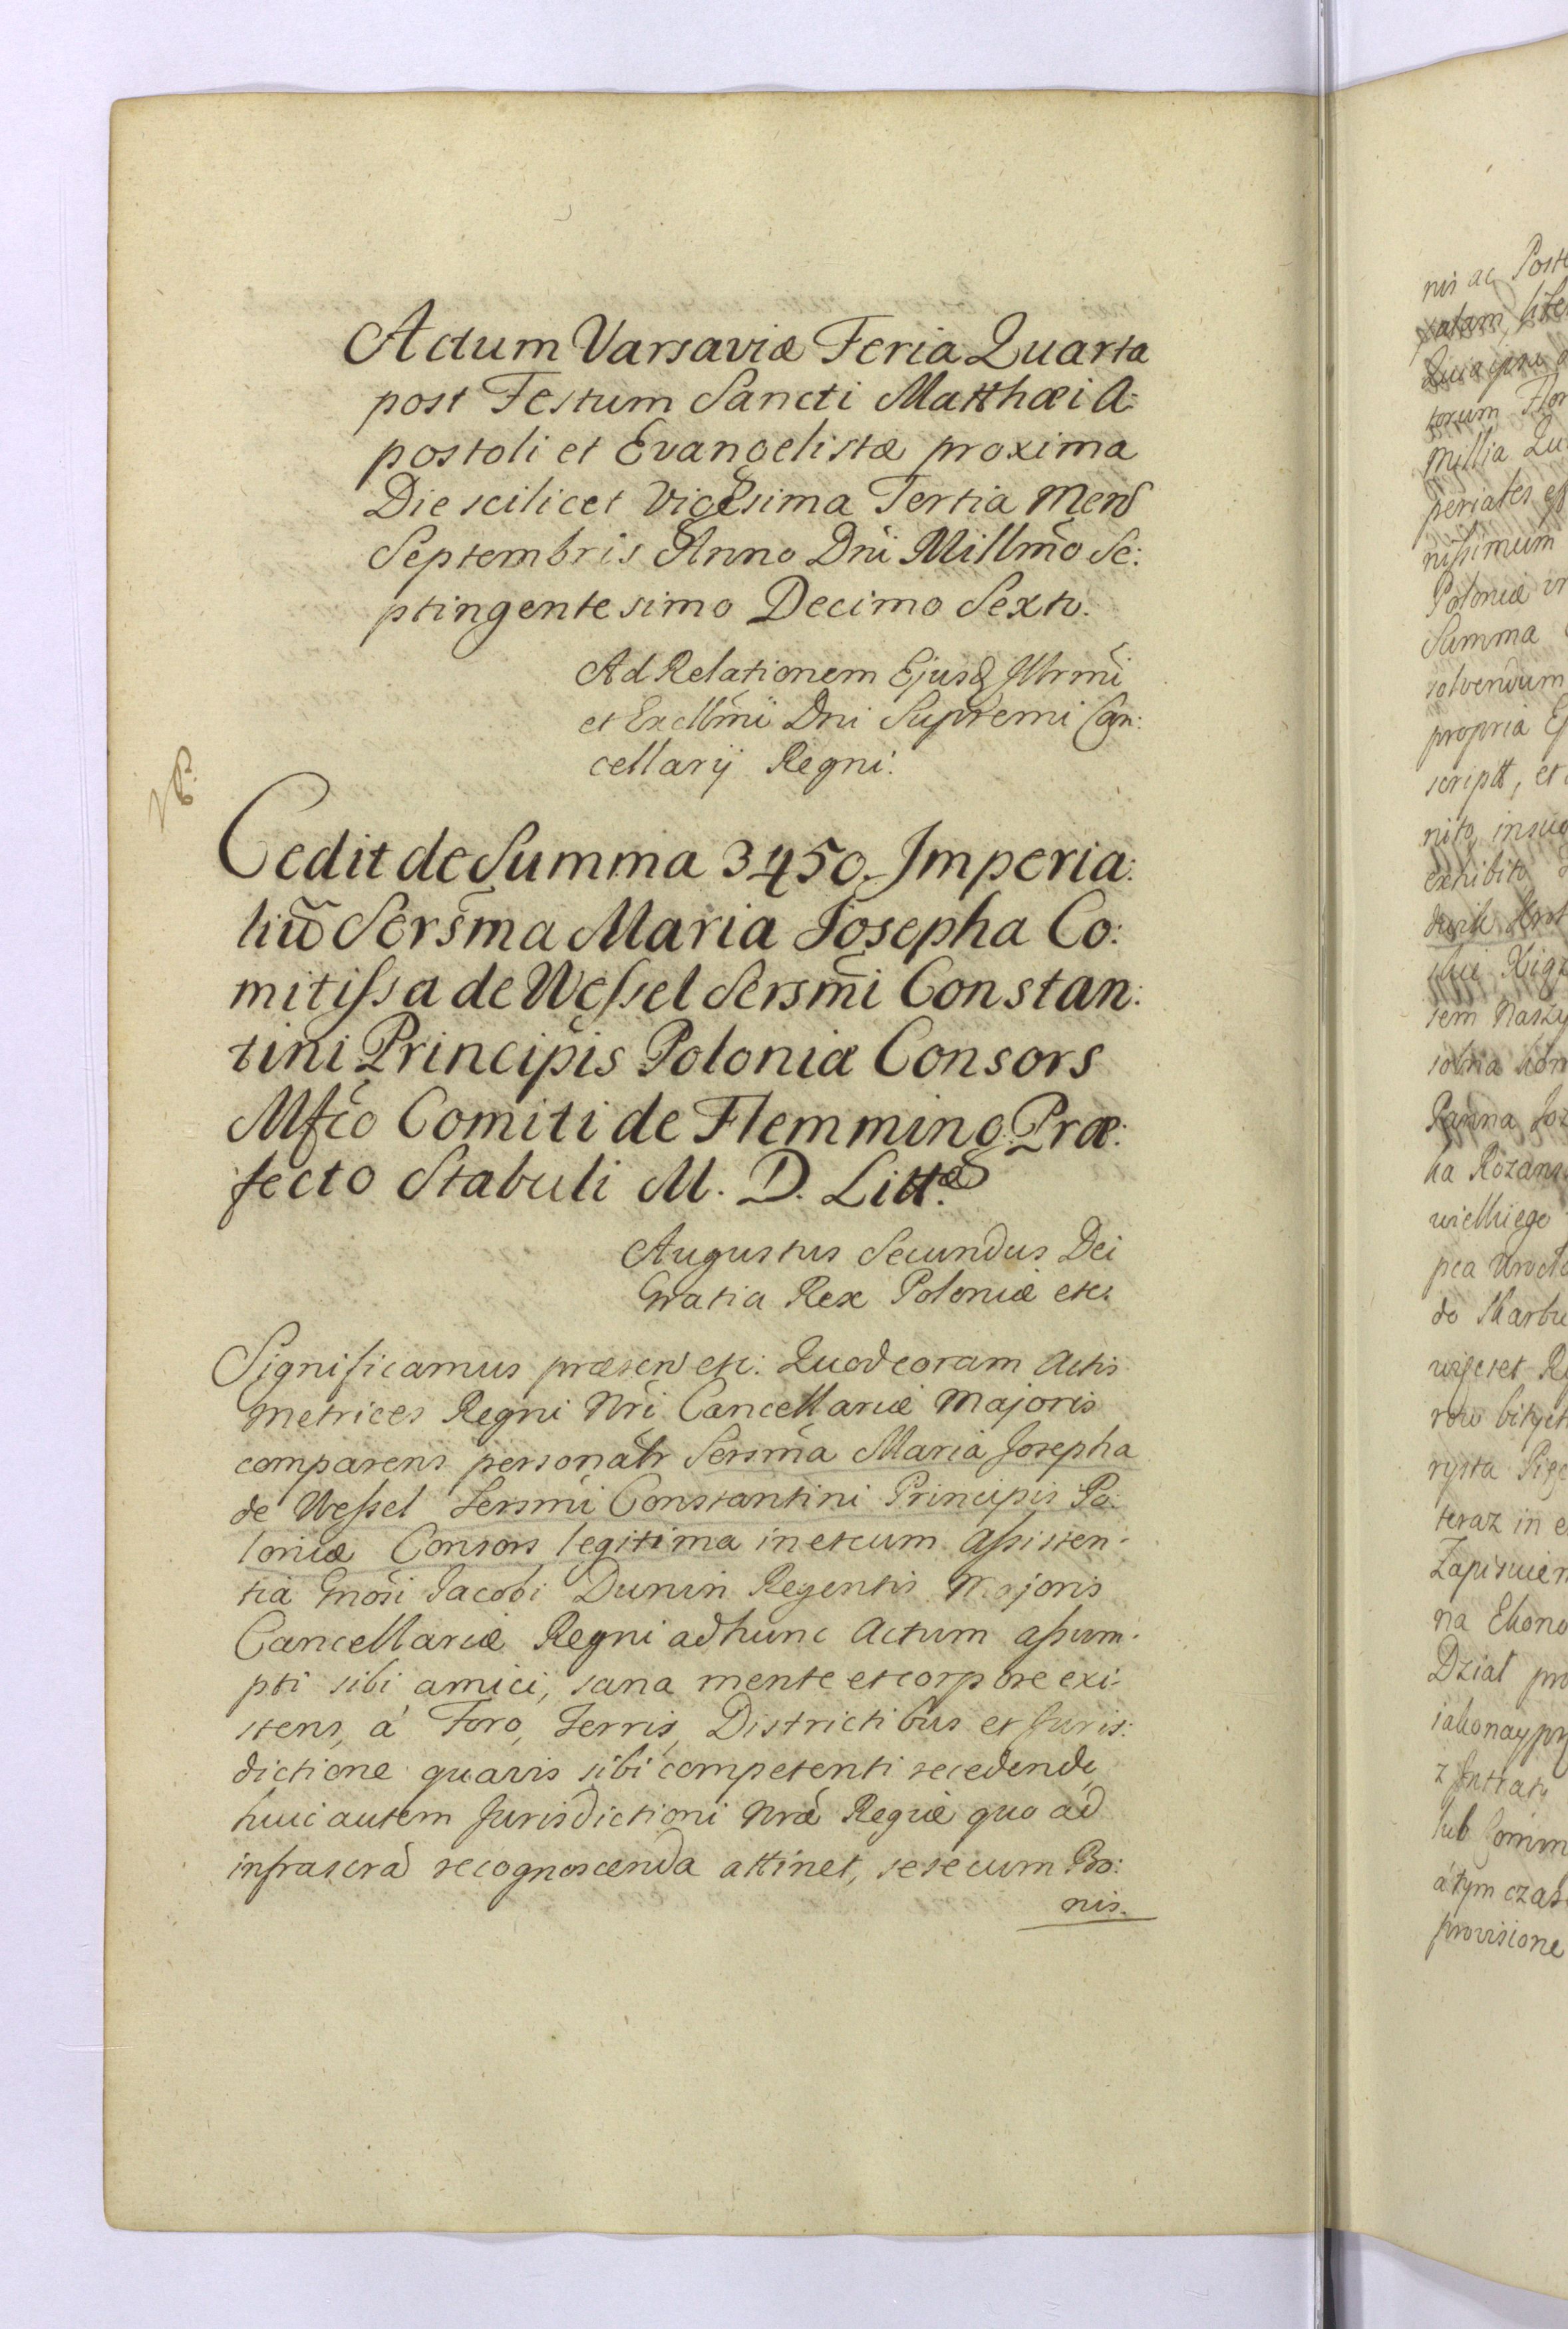 Actum Varsaviæ Feria Quarta
post Festum Sancti Matthæi A:
postoli et Evangelistæ proxima
Die scilicet Vigesima Tertia Mens
Septembris Anno Dni Millmo Se:
ptingentesimo Decimo Sexto.
Ad Relationem Ejusd Illrmi
et Excllmi Dni Supremi Can:
cellarij Regni.
Cedit de Summa 3450. Imperia:
liu Sersma Maria Josepha Co:
mitissa de Wessel Sersmi Constan:
tini Principis Poloniæ Consors
Mfco Comiti de Flemming Præ:
fecto Stabuli M. D. Litt.
Augustus Secundus Dei
Gratia Rex Poloniæ etc.
Significamus præsen etc: Quod coram Actis
Metrices Regni Nri Cancellariæ Majoris
comparens personalr Sersma Maria Josepha
de Wessel Sersmi Constantini Principis Po:
loniæ Consors legitima in et cum Assisten:
tia Gnosi Jacobi Dunin Regentis Majoris
Cancellariæ Regni ad hunc Actum assum:
pti sibi amici, sana mente et corpore exi:
stens, á Foro, Terris, Districtibus et Juris:
dictione quavis sibi competenti recedendo
huic autem Jurisdictioni Nræ Regiæ quo ad
infrascra recognoscenda attinet, se se cum Bo:
nis.
nis ac
millia
nissimum
Poloniæ
Summa
solvendum
propria
script, et
exhibito
ha
wielkiego
do Skarbu
teraz in
na
Dział
provisione